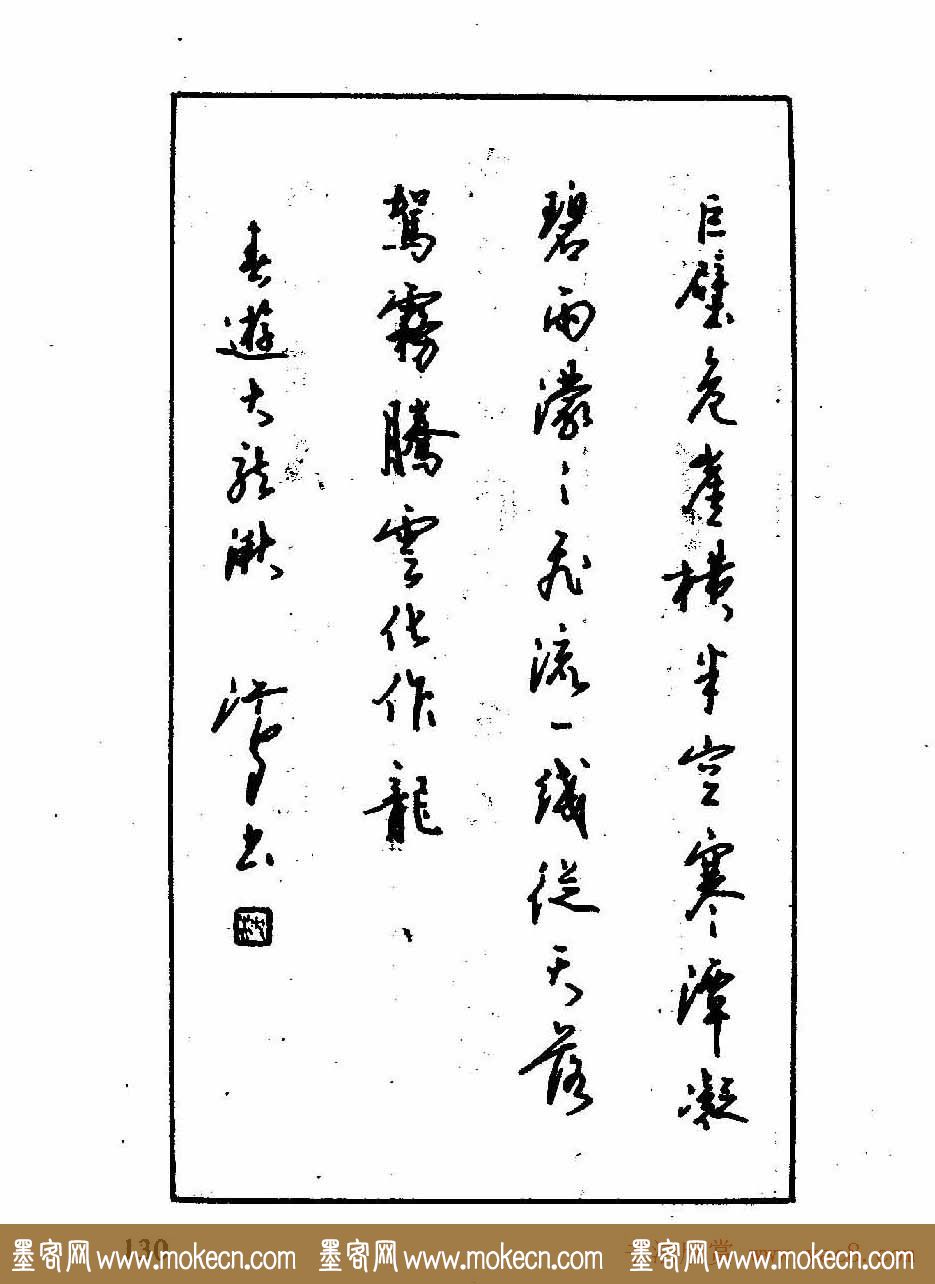 巨壁危崖橫半空寒潭凝
碧雨濛々飛流一线從天落
駕霧騰雲化作龍
春遊大龍湫 書
130
墨客网 www.mokecn.com 墨客网 www.mokecn.com 墨客网 www.mokecn.com